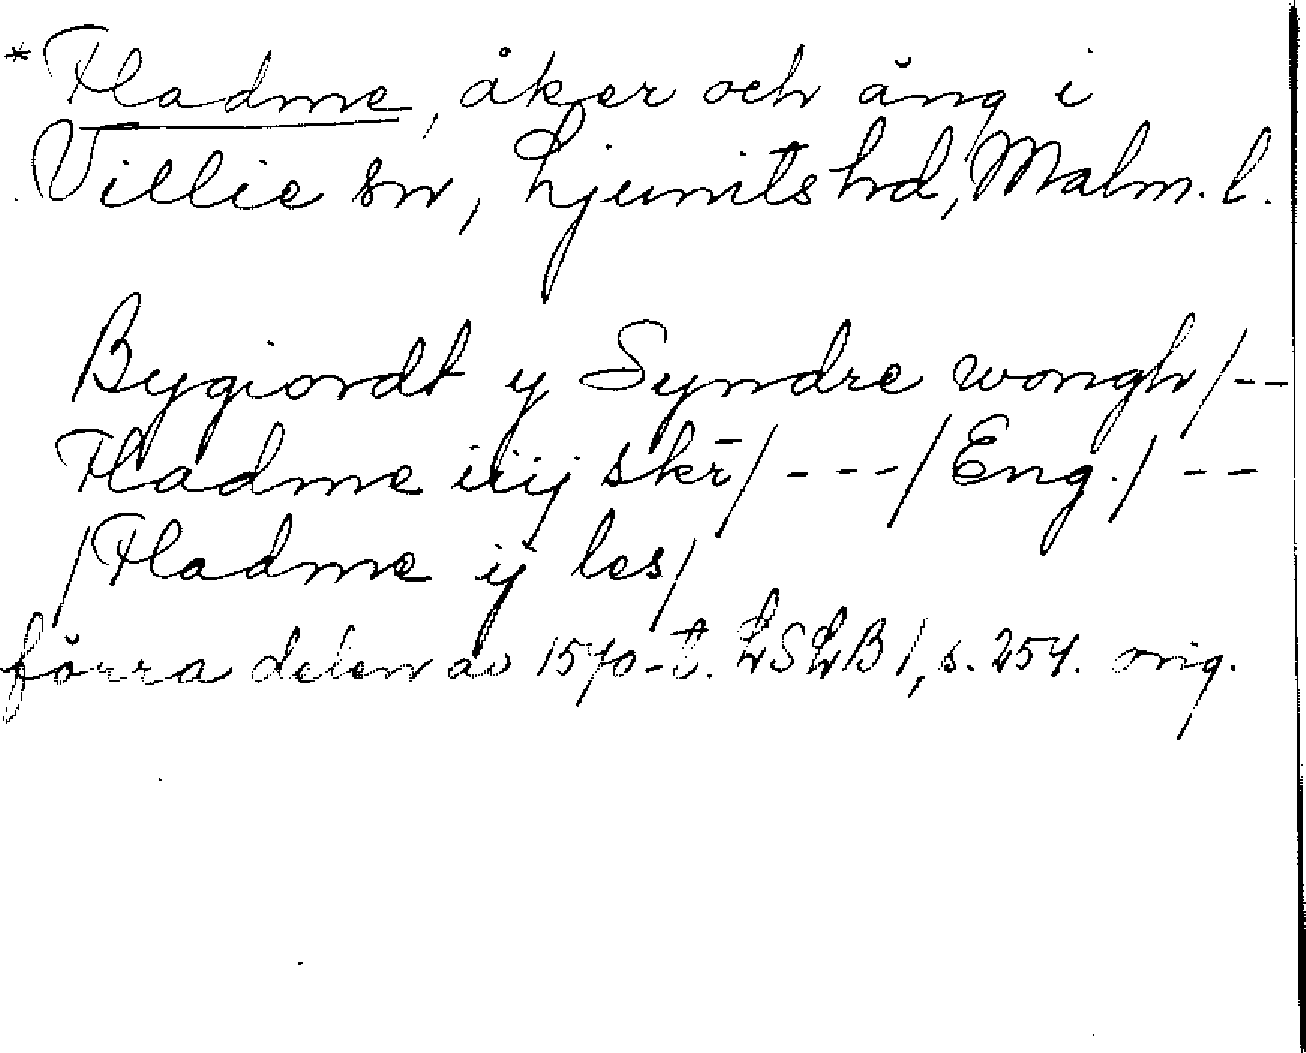 *Fladme, åker och äng i
Villie sn, Ljunits hd, Malm. l.
Bygiordt y Syndre wongh/--
Fladme iiij skr̄/---/Eng./--
/Fladme ij les/
förra delen av 1570-t. LSLB 1, s. 254. orig.